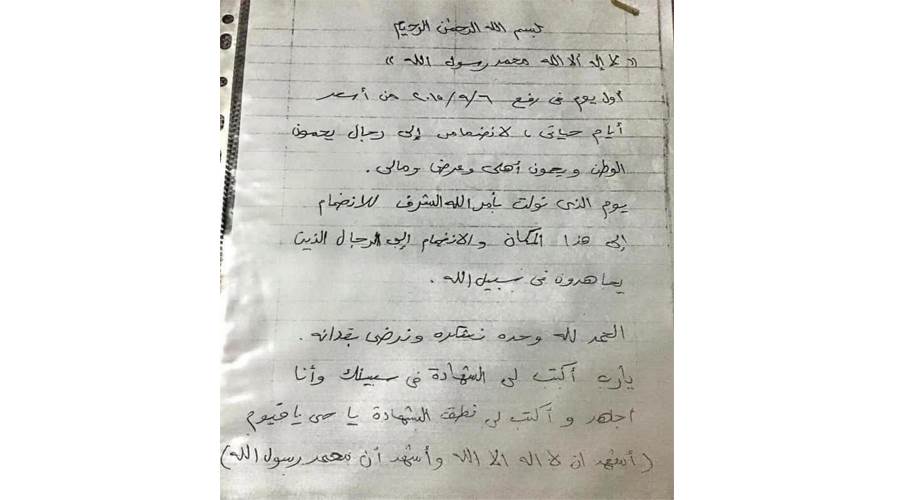 بسم الله الرحمن الرحيم
« لا إله الا الله محمد رسول الله »
أول يوم فى رفح ٢٠١٥/٩/٦ من أسعد
أيام حياتى ، لانضمامى إلى رجال يحمون
الوطن ويحمون أهلى وعرضى ومالى .
يوم الذى نولت بأمر الله الشرف للانضمام
إلى هذا المكان والانضمام إلى الرجال الذين
يجاهدوة فى سبيل الله .
الحمد لله وحده نشكره ونرضى بقدراته .
يارب أكتب لى الشهادة فى سبيلك وأنا
أجاهد و أكتب لى نطق الشهادة يا حى يا قيوم
(أشهد ان لا اله الا الله وأشهد أن محمد رسول الله)